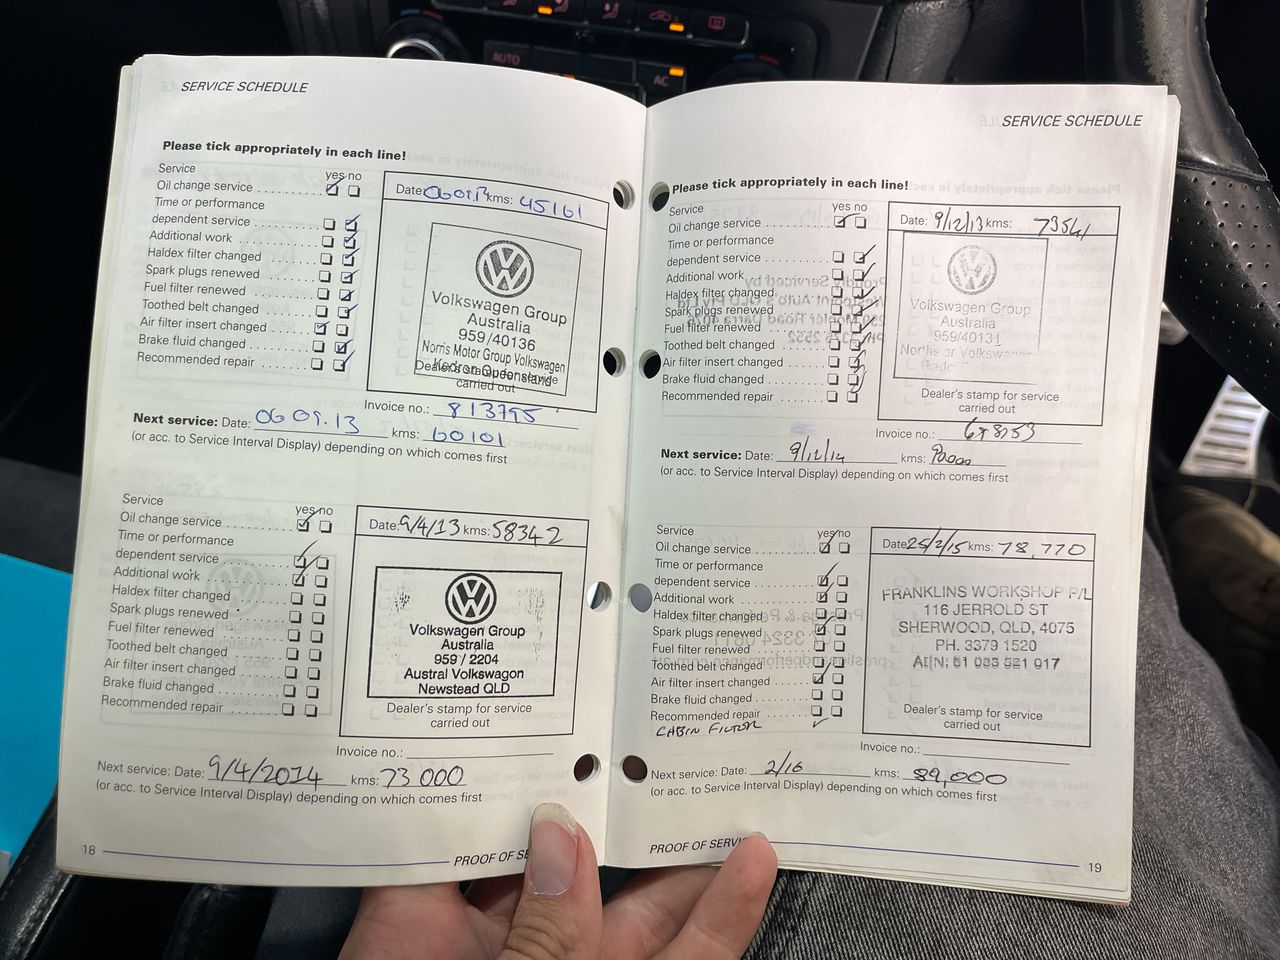 AUTO
AC
SERVICE SCHEDULE
Please tick appropriately in each line!
Service
yes no
Oil change service
Time or performance
dependent service
Additional work
Haldex filter changed
Spark plugs renewed
Fuel filter renewed
Toothed belt changed
Air filter insert changed
Brake fluid changed
Recommended repair
Date: kms: 45161
Volkswagen Group
Australia
959/40136
Norris Motor Group Volkswagen
Kedron Queensland
Dealer's stamp for service
carried out
Invoice no.: 813795
Next service: Date: 06 09.13 kms: 60101
(or acc. to Service Interval Display) depending on which comes first
Service
yes no
Oil change service
Time or performance
dependent service
Additional work
Haldex filter changed
Spark plugs renewed
Fuel filter renewed
Toothed belt changed
Air filter insert changed
Brake fluid changed
Recommended repair
Date: 9/4/13 kms: 58342
Volkswagen Group
Australia
959 / 2204
Austral Volkswagen
Newstead QLD
Dealer's stamp for service
carried out
Invoice no.:
Next service: Date: 9/4/2014 kms: 73 000
(or acc. to Service Interval Display) depending on which comes first
18
PROOF OF
SERVICE SCHEDULE
Please tick appropriately in each line!
Service
yes no
Oil change service
Time or performance
dependent service
Additional work
Haldex filter changed
Spark plugs renewed
Fuel filter renewed
Toothed belt changed
Air filter insert changed
Brake fluid changed
Recommended repair
Date: 9/12/13 kms: 73541
Volkswagen Group
Australia
959/40131
Dealer's stamp for service
carried out
Invoice no.:
Next service: Date: 9/12/14 kms: 90000
(or acc. to Service Interval Display) depending on which comes first
Service
yes no
Oil change service
Time or performance
dependent service
Additional work
Haldex filter changed
Spark plugs renewed
Fuel filter renewed
Toothed belt changed
Air filter insert changed
Brake fluid changed
Recommended repair
CABIN FILTER
Date: 25/2/15 kms: 78,770
FRANKLINS WORKSHOP P/L
116 JERROLD ST
SHERWOOD, QLD, 4075
PH. 3379 1520
Dealer's stamp for service
carried out
Invoice no.:
Next service: Date: 2/16 kms: 89,000
(or acc. to Service Interval Display) depending on which comes first
PROOF OF
19